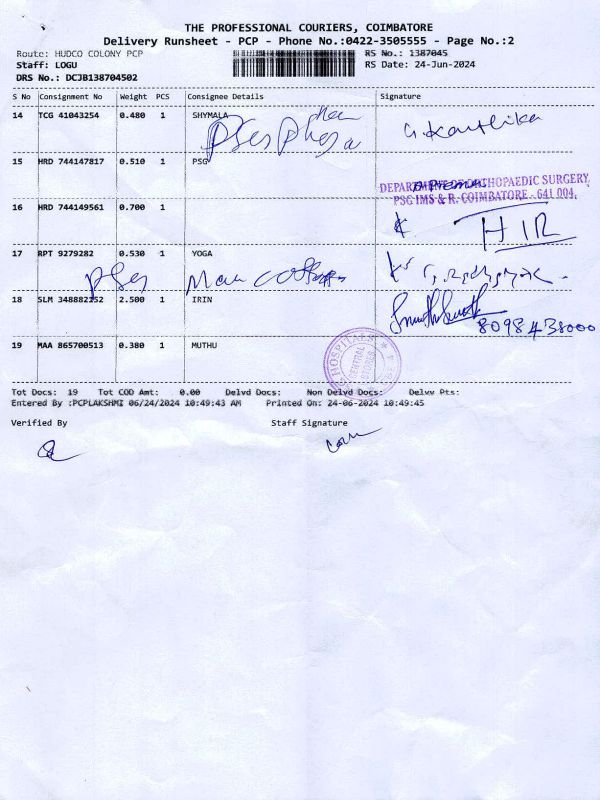 THE PROFESSIONAL COURIERS, COIMBATORE
Delivery Runsheet - PCP - Phone No.:0422-3505555 - Page No.:2
Route: HUDCO COLONY PCP
RS No.: 1387045
Staff: LOGU
RS Date: 24-Jun-2024
DRS No.: DCJB138704502
S No Consignment No Weight PCS Consignee Details Signature
14 TCG 41043254 0.480 1 SHYMALA
15 HRD 744147817 0.510 1 PSG
DEPARTMENT OF ORTHOPAEDIC SURGERY
PSG IMS & R. COIMBATORE - 641 004.
16 HRD 744149561 0.700 1
17 RPT 9279282 0.530 1 YOGA
18 SLM 348882152 2.500 1 IRIN
8098438000
19 MAA 865700513 0.380 1 MUTHU
HOSPITALS
CENTRAL STORES
Tot Docs: 19 Tot COD Amt: 0.00 Delvd Docs: Non Delvd Docs: Delvv Pts:
Entered By :PCPLAKSHMI 06/24/2024 10:49:43 AM Printed On: 24-06-2024 10:49:45
Verified By Staff Signature